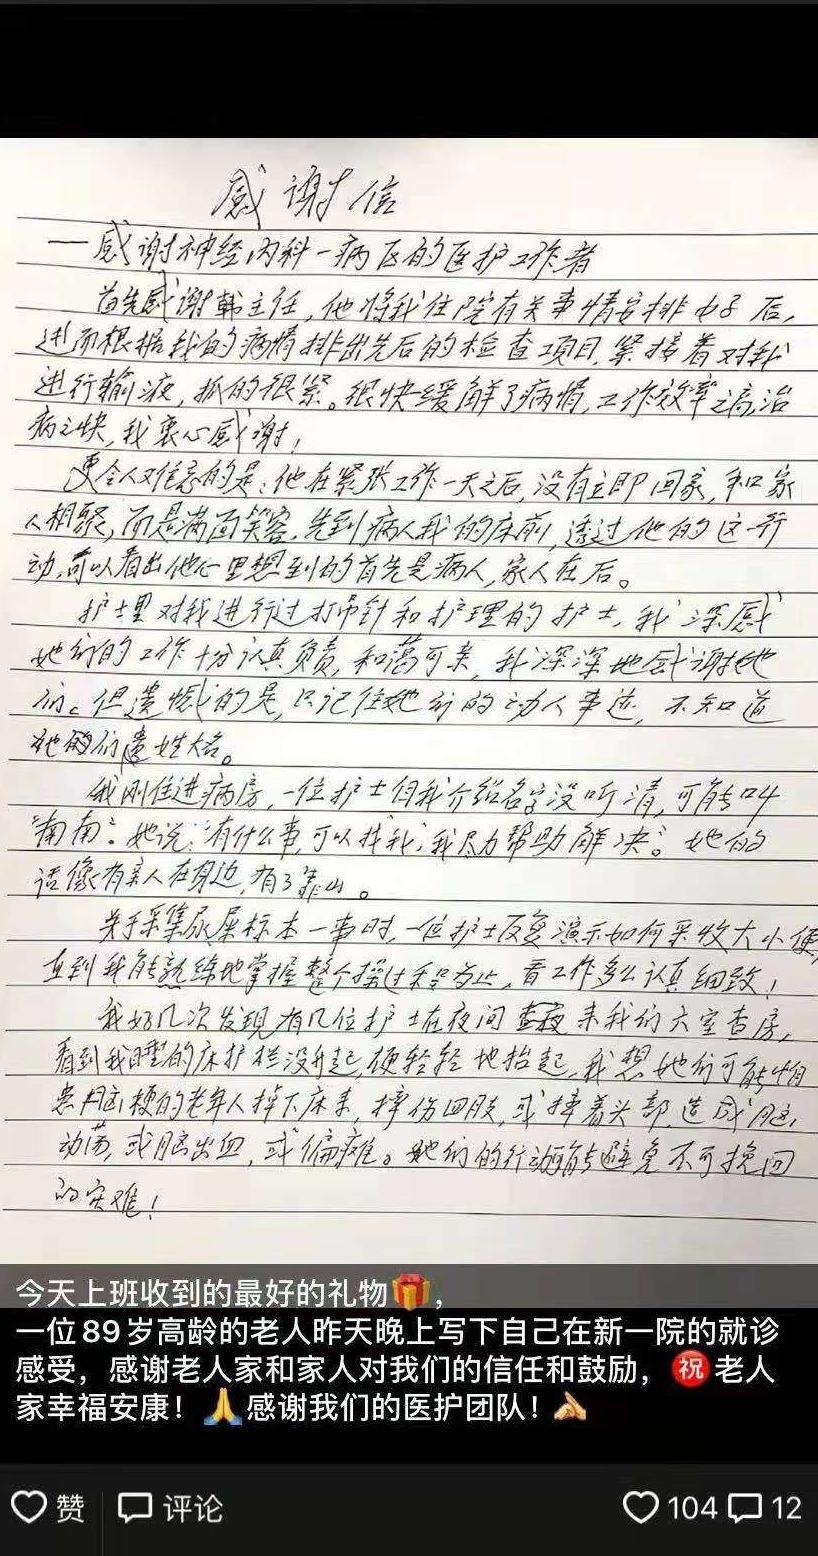 感谢信
一感谢神经内科一病区的医护工作者
首先感谢韩主任，他将我住院有关事情安排好后，
进而根据我的病情排出先后的检查项目，紧接着对我
进行输液，抓的很紧。很快缓解了病情，工作效率之高治
病之快，我衷心感谢！
更令人难忘的是：他在紧张工作一天之后，没有立即回家，和家
人相聚，而是满面笑容，先到病人我的床前，透过他的这一行
动，可以看出他心里想到的首先是病人，家人在后。
护士里对我进行过打吊针和护理的护士，我深感
她们的工作十分认真负责，和蔼可亲，我深深地感谢她
们。但遗憾的是，只记住她们的动人事迹，不知道
她们的姓大名。
我刚住进病房，一位护士但我介绍名字没听清，可能叫
“南南”。她说：“有什么事，可以找我，我尽力帮助解决”。她的
话像有亲人在身边，有了靠山。
关于采集尿屎标本一事时，一位护士反复演示如何采收大小便，
直到我能熟练地掌握整个操过程为止，看工作多么认真细致！
我好几次发现有几位护士在夜间来我们六室查房，
看到我睡的床护栏没升起，便轻轻地抬起，我想她们可能怕
患脑梗的老年人掉下床来，摔伤四肢，或摔着头部，造成脑
动荡，或脑出血，或偏瘫。她们的行动能避免不可挽回
的灾难！
今天上班收到的最好的礼物🎁，
一位89岁高龄的老人昨天晚上写下自己在新一院的就诊
感受，感谢老人家和家人对我们的信任和鼓励，㊗️老人
家幸福安康！🙏感谢我们的医护团队！
赞 评论 104 12